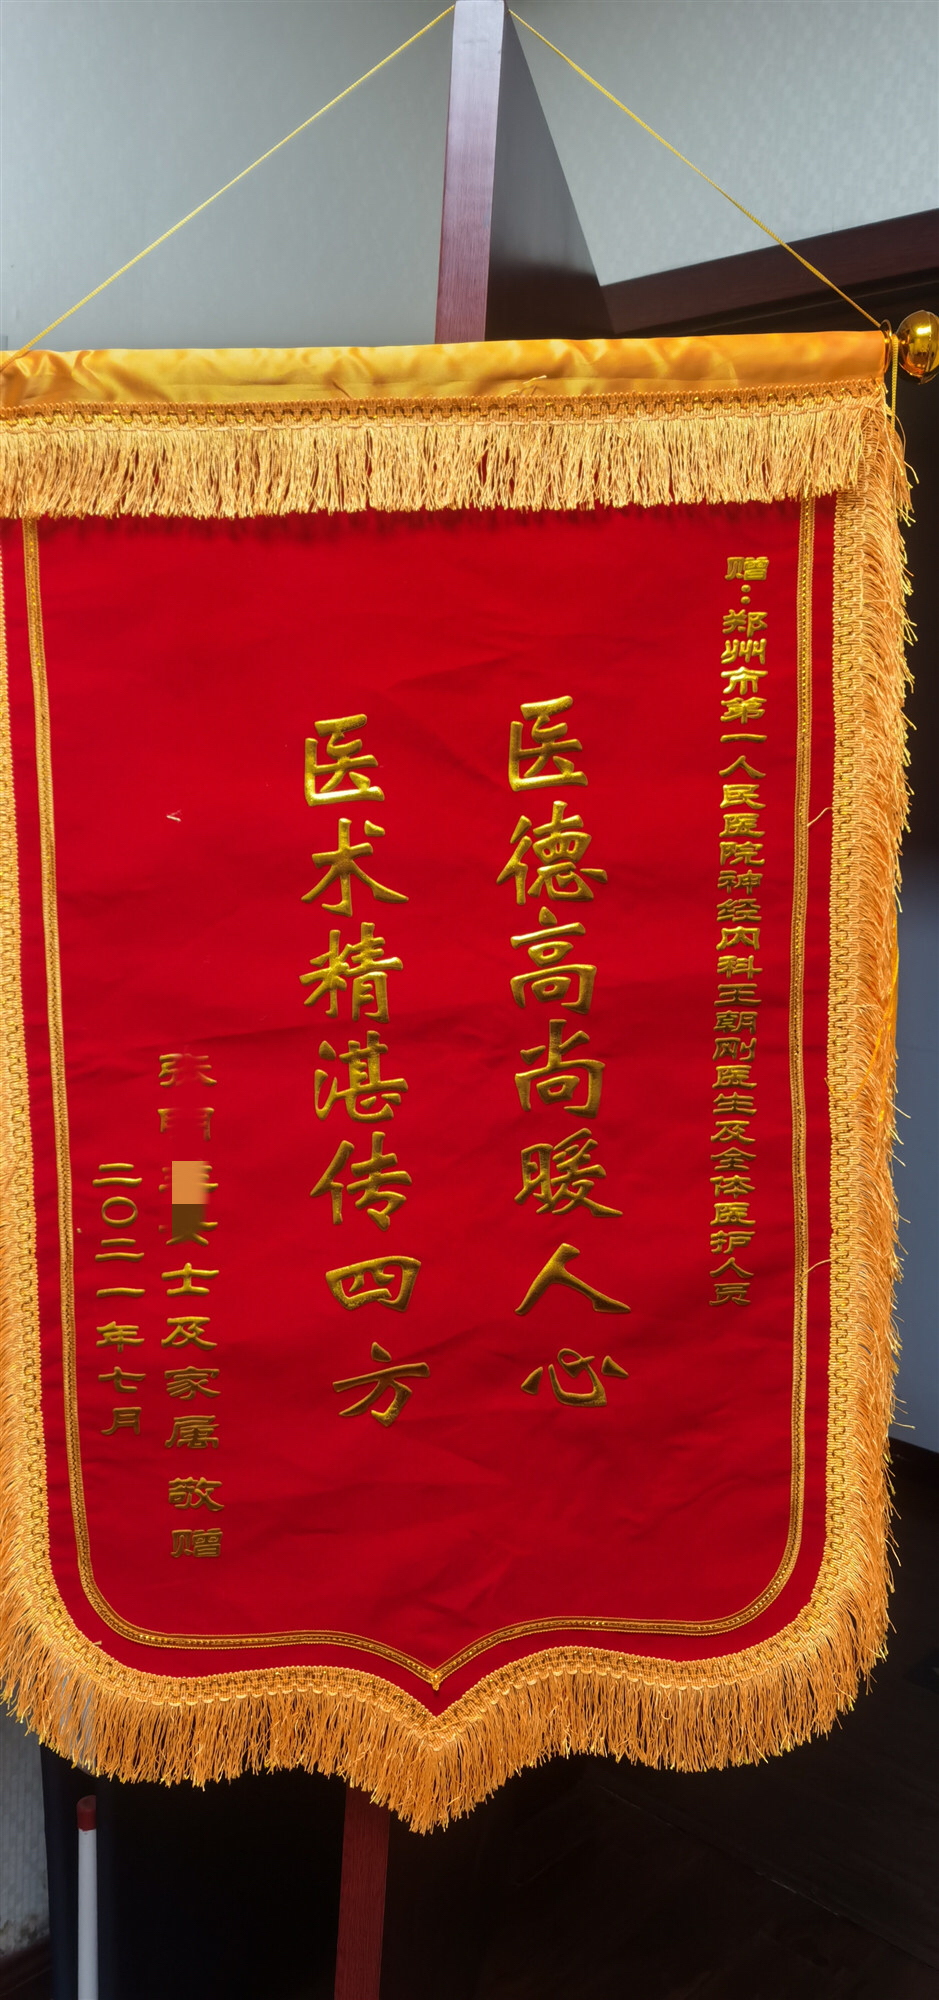 赠：郑州市第一人民医院神经内科王朝刚医生及全体医护人员
医德高尚暖人心
医术精湛传四方
张 士及家属 敬赠
二〇二一年七月